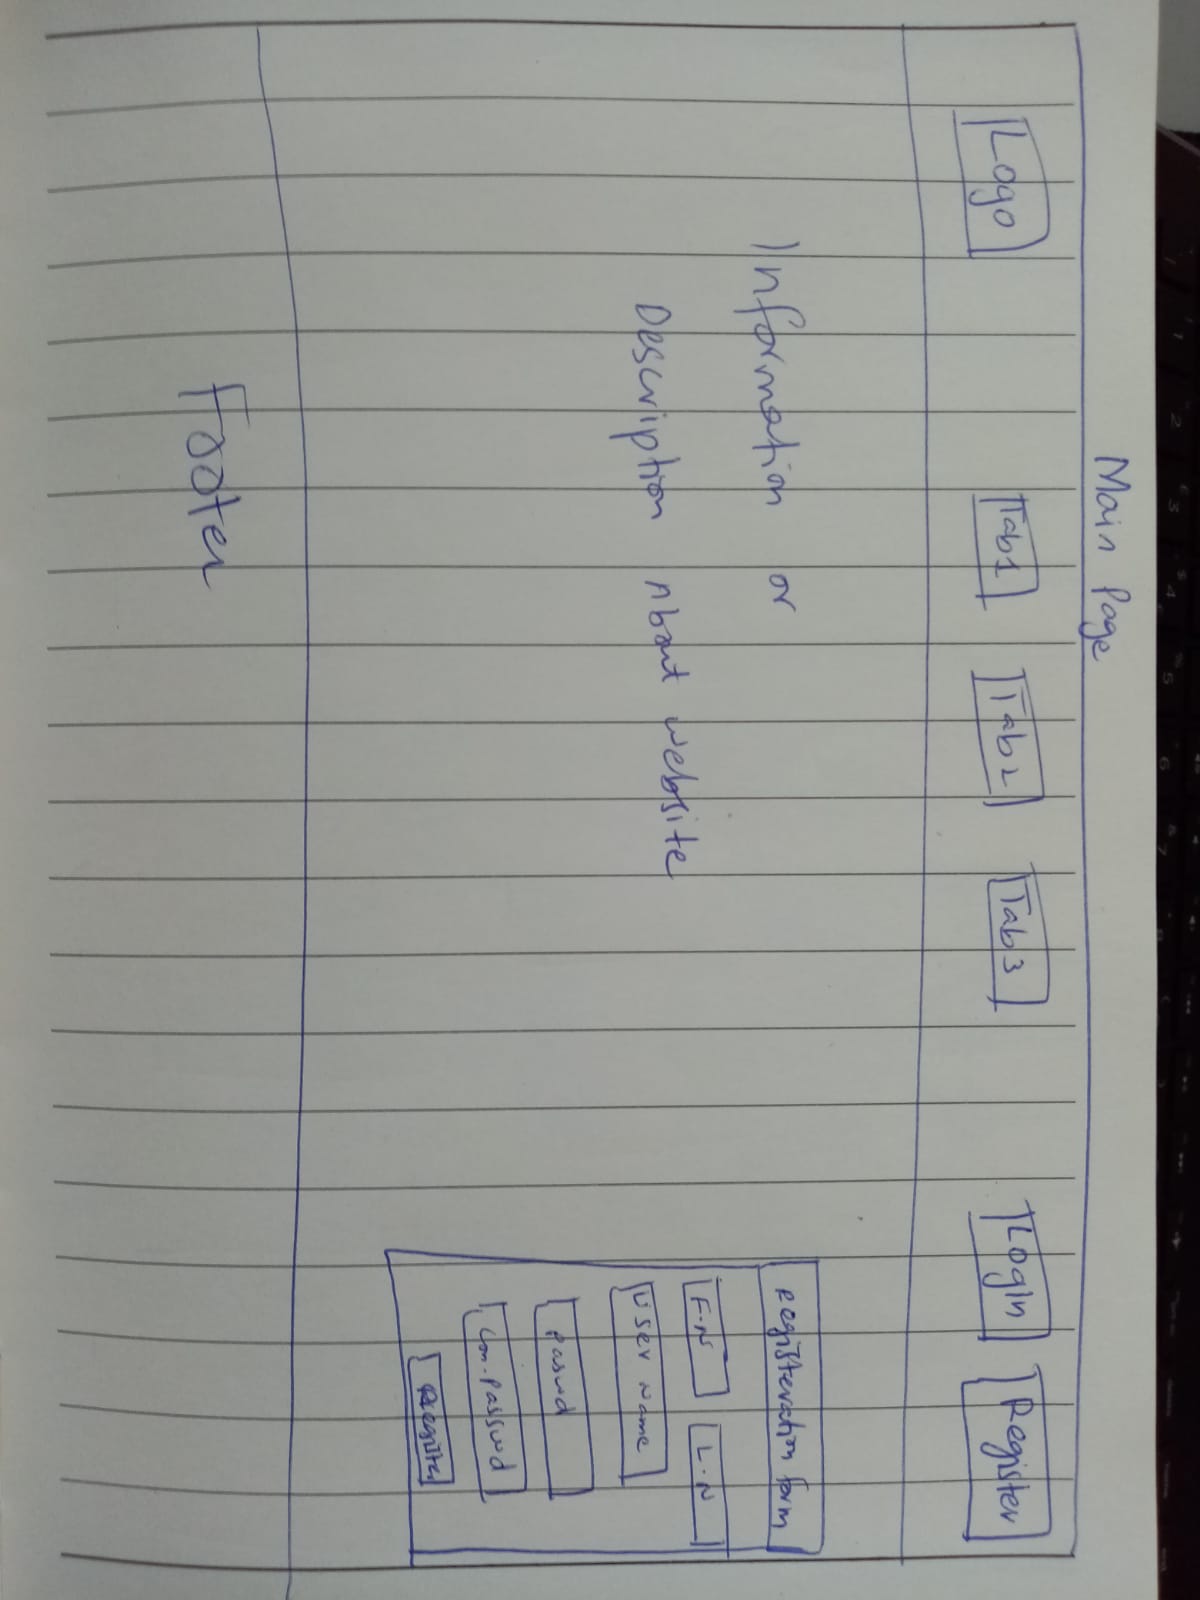 Main Page
Logo Tab1 Tab2 Tab3 Login Register
Information or
Description About website
Registeration form
F.N L.N
User Name
Paswd
Con.Passwd
Register
Footer